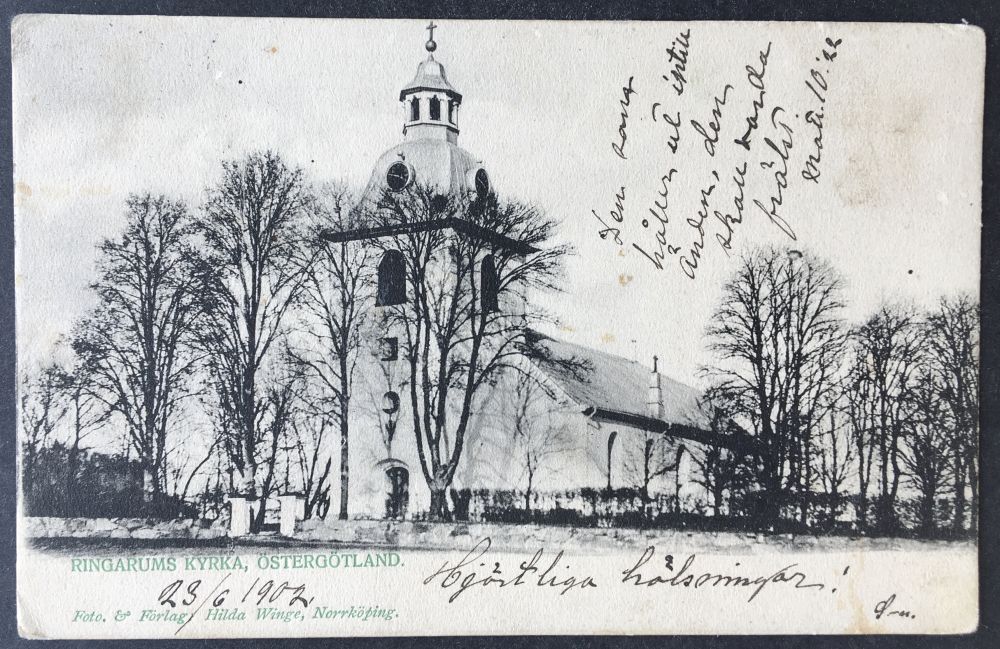 Den som
håller ut intill
änden, den
skall varda
frälst.
Mat. 10:22
RINGARUMS KYRKA, ÖSTERGÖTLAND.
Hjärtliga hälsningar!
23/6 1902.
Foto. & Förlag, Hilda Winge, Norrköping.